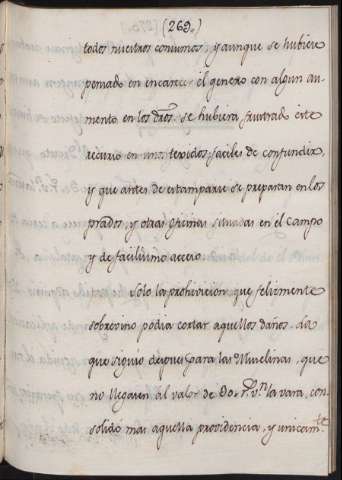 (269.)
todos nuestros consumos, y aunque se hubiese
pensado en encarecer el genero con algun au-
mento en los dros. se hubiera frustrado este
recurso en unos texidos faciles de confundir,
y que antes de estamparse se preparan en los
prados, y otras oficinas situadas en el campo
y de facilisimo acceso.
Solo la prohivicion que felizmente
sobrevino podia cortar aquellos daños. La
que siguio despues para las Muselinas, que
no llegasen al valor de 30. rs. vn. la vara, con-
solido mas aquella providencia, y unicamte.